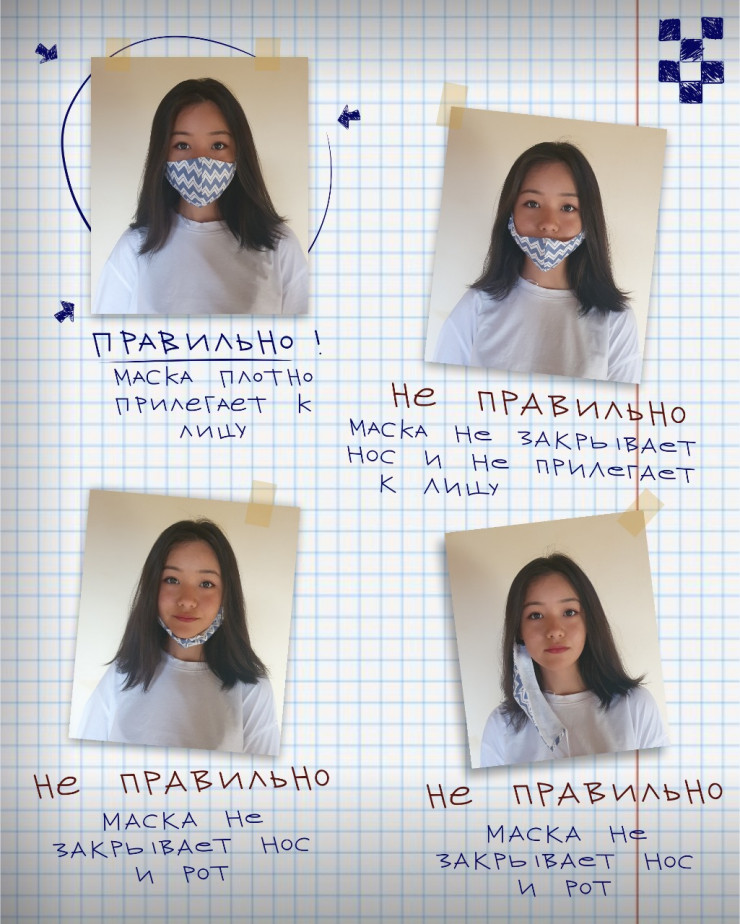 ПРАВИЛЬНО!
МАСКА ПЛОТНО
ПРИЛЕГАЕТ К
ЛИЦУ
НЕ ПРАВИЛЬНО
МАСКА НЕ ЗАКРЫВАЕТ
НОС И НЕ ПРИЛЕГАЕТ
К ЛИЦУ
НЕ ПРАВИЛЬНО
МАСКА НЕ
ЗАКРЫВАЕТ НОС
И РОТ
НЕ ПРАВИЛЬНО
МАСКА НЕ
ЗАКРЫВАЕТ НОС
И РОТ